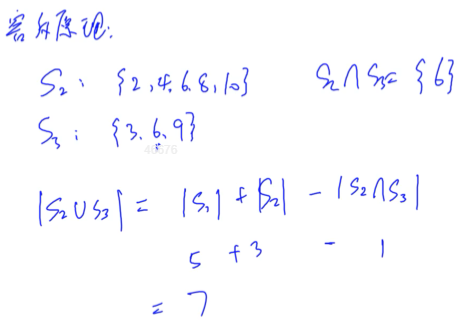 容斥原理:
S₂: {2,4,6,8,10} S₂∩S₃= {6}
S₃: {3,6,9}
46576
|S₂∪S₃| = |S₁| + |S₂| - |S₂∩S₃|
5 + 3 - 1
= 7